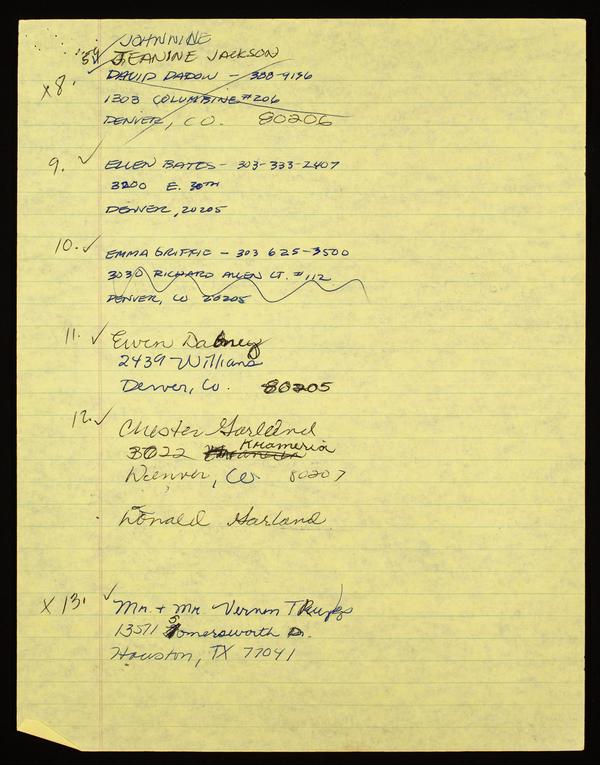 JOHNNINE
JEANINE JACKSON
x8. DAVID DADON - 388-9156
1303 COLUMBINE #206
DENVER, CO. 80206
9. ✓ ELLEN BATES - 303-333-2407
3200 E. 30TH
DENVER, 20205
10. ✓ EMMA GRIFFIE - 303 625-3500
3030 RICHARD ALLEN CT. #112
DENVER, CO 20205
11. ✓ Ewen Dabney
2439 Williams
Denver, Co. 80205
12. ✓ Chester Garland
3022 Krameria
Denver, Co 80207
Donald Garland
x 13. ✓ Mr. + Mr Vernon
13511 Somersworth Dr.
Houston, TX 77041